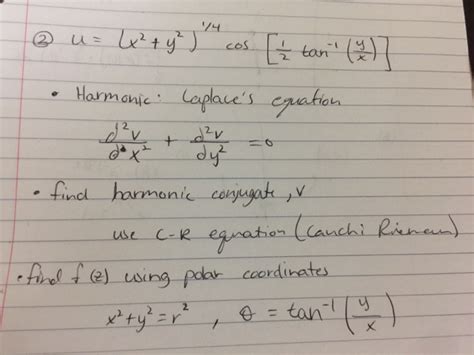 ② u = (x² + y²)^1/4 cos [1/2 tan⁻¹ (y/x)]
• Harmonic: Laplace's equation
d²v/dx² + d²v/dy² = 0
• find harmonic conjugate, v
use C-R equation (Cauchi Riemann)
• find f(z) using polar coordinates
x² + y² = r² , θ = tan⁻¹ (y/x)